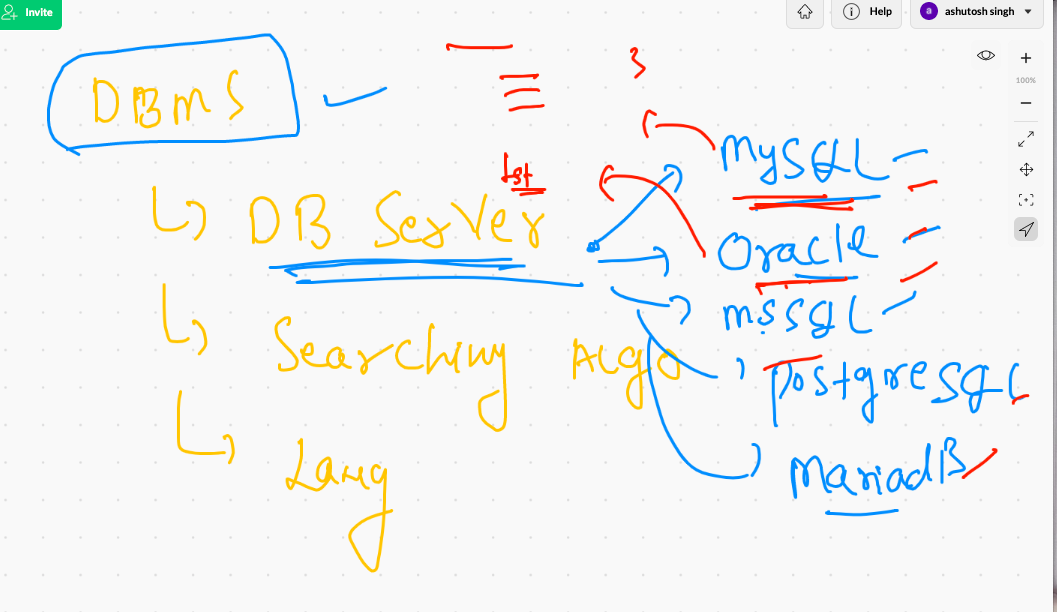 Invite
Help
ashutosh singh
100%
DBMS
DB Server
Searching Algo
Lang
1st
3
MySQL
Oracle
MSSQL
PostgreSQL
MariadB